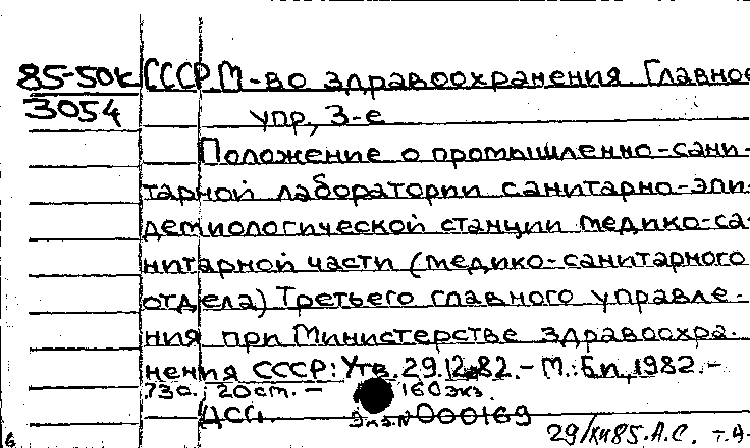 85-50к СССР. М-во здравоохранения Главное
3054 упр., 3-е
Положение о промышленно-сани-
тарной лаборатории санитарно-эпи-
демиологической станции медико-са-
нитарной части (медико-санитарного
отдела) Третьего главного управле-
ния при Министерстве здравоохра-
нения СССР: Утв. 29.12.82. - М.: Б.и., 1982. -
73с.; 20см. - 160экз.
ДСП. Экз.N 000169
29/XII 85. А.С. т.А.